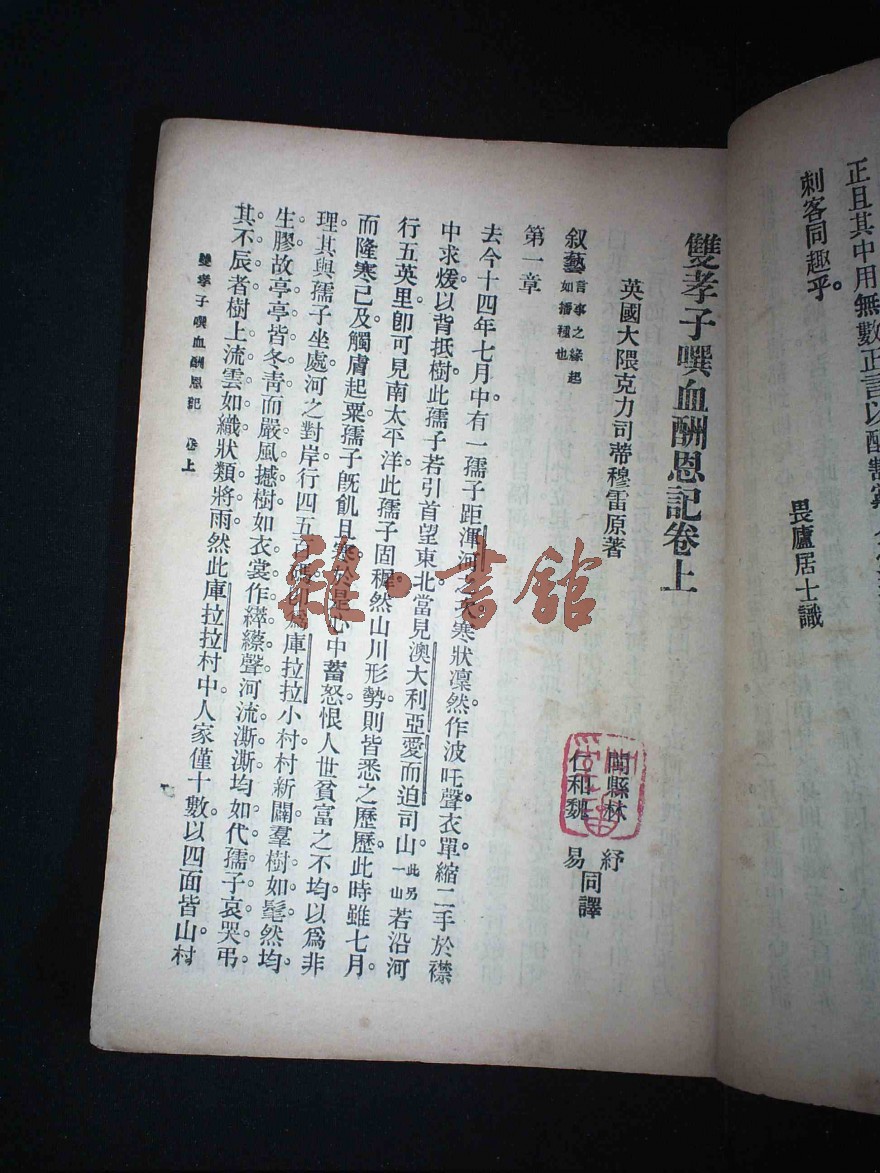 正且其中用無數正言以
刺客同趣乎。
畏廬居士識
雙孝子噀血酬恩記卷上
英國大隈克力司蒂穆雷原著
閩縣林紓
仁和魏易
同譯
叙藝言事之緣起如播種也
第一章
去今十四年七月中有一孺子距渾河之
寒狀凛然作波吒聲衣單縮二手於襟
中求煖以背抵樹此孺子若引首望東北當見澳大利亞愛而迫司山此另一山若沿河
行五英里卽可見南太平洋此孺子固穉然山川形勢則皆悉之歷歷此時雖七月。
而隆寒已及觸膚起粟孺子既飢且寒於是心中蓄怒恨人世貧富之不均以爲非
理其與孺子坐處河之對岸行四五百碼卽爲庫拉拉小村村新闢羣樹如髡然均
生膠故亭亭皆冬靑而嚴風撼樹如衣裳作繂縩聲河流澌澌均如代孺子哀哭弔
其不辰者樹上流雲如織狀類將雨然此庫拉拉村中人家僅十數以四面皆山村
雙孝子噀血酬恩記 卷上
雜·書館